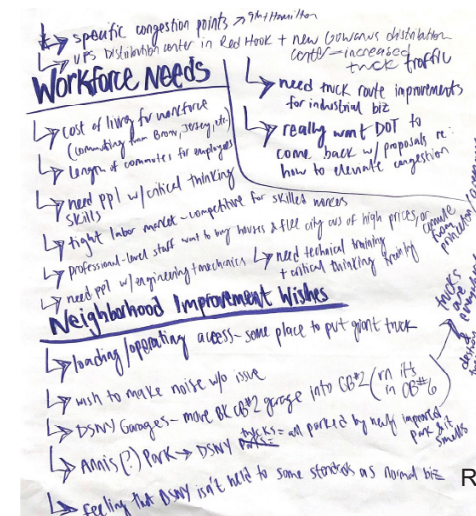 ↳ specific congestion points → 9th + Hamilton
↳ UPS Distribution center in Red Hook + new Gowanus distribution
center - increased
truck traffic
↳ need truck route improvements
for industrial biz
↳ really want DOT to
come back w/ proposals re:
how to elevate congestion
Workforce Needs
↳ cost of living for workforce
(commuting from Bronx, Jersey, etc.)
↳ length of commutes for employees
↳ need ppl w/critical thinking
skills
↳ tight labor market - competitive for skilled workers
↳ professional-level staff want to buy houses & flee city cus of high prices, or
commute
from
↳ need ppl w/engineering + mechanics
↳ need technical training
+ critical thinking training
Neighborhood Improvement Wishes
↳ loading/operating access - some place to put giant truck
↳ wish to make noise w/o issue
↳ DSNY Garages - move BK CB#2 garage into CB#2 (rn its
in CB#6)
↳ Annis(?) Park → DSNY trucks = all parked by newly improved
park & it
smells
trucks
are
↳ feeling that DSNY isn't held to same standards as normal biz
R